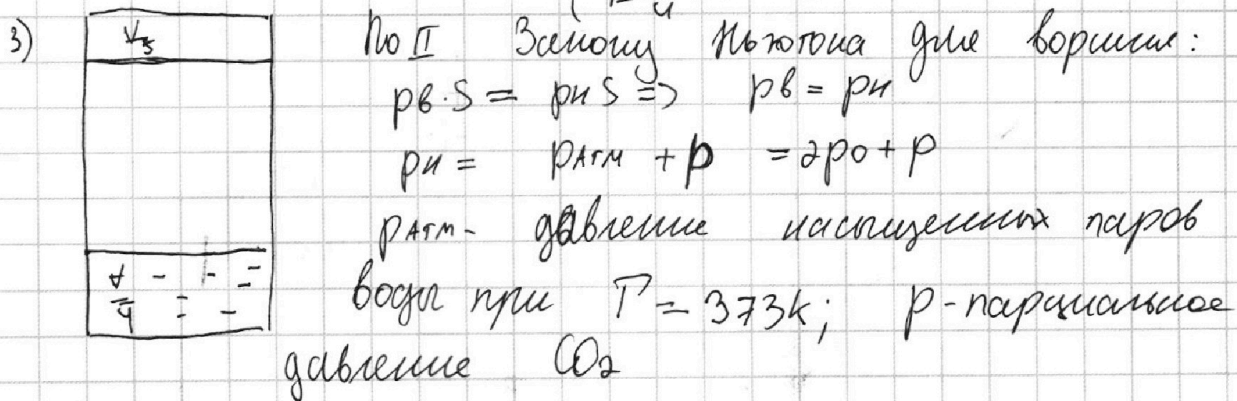 3) V/5 По II Закону Ньютона для поршня:
pв·S = pн S => pв = pн
pн = pАТМ + p = 2p0 + p
pАТМ - давление насыщенных паров
V/4 воды при T = 373К; p - парциальное
давление CO2